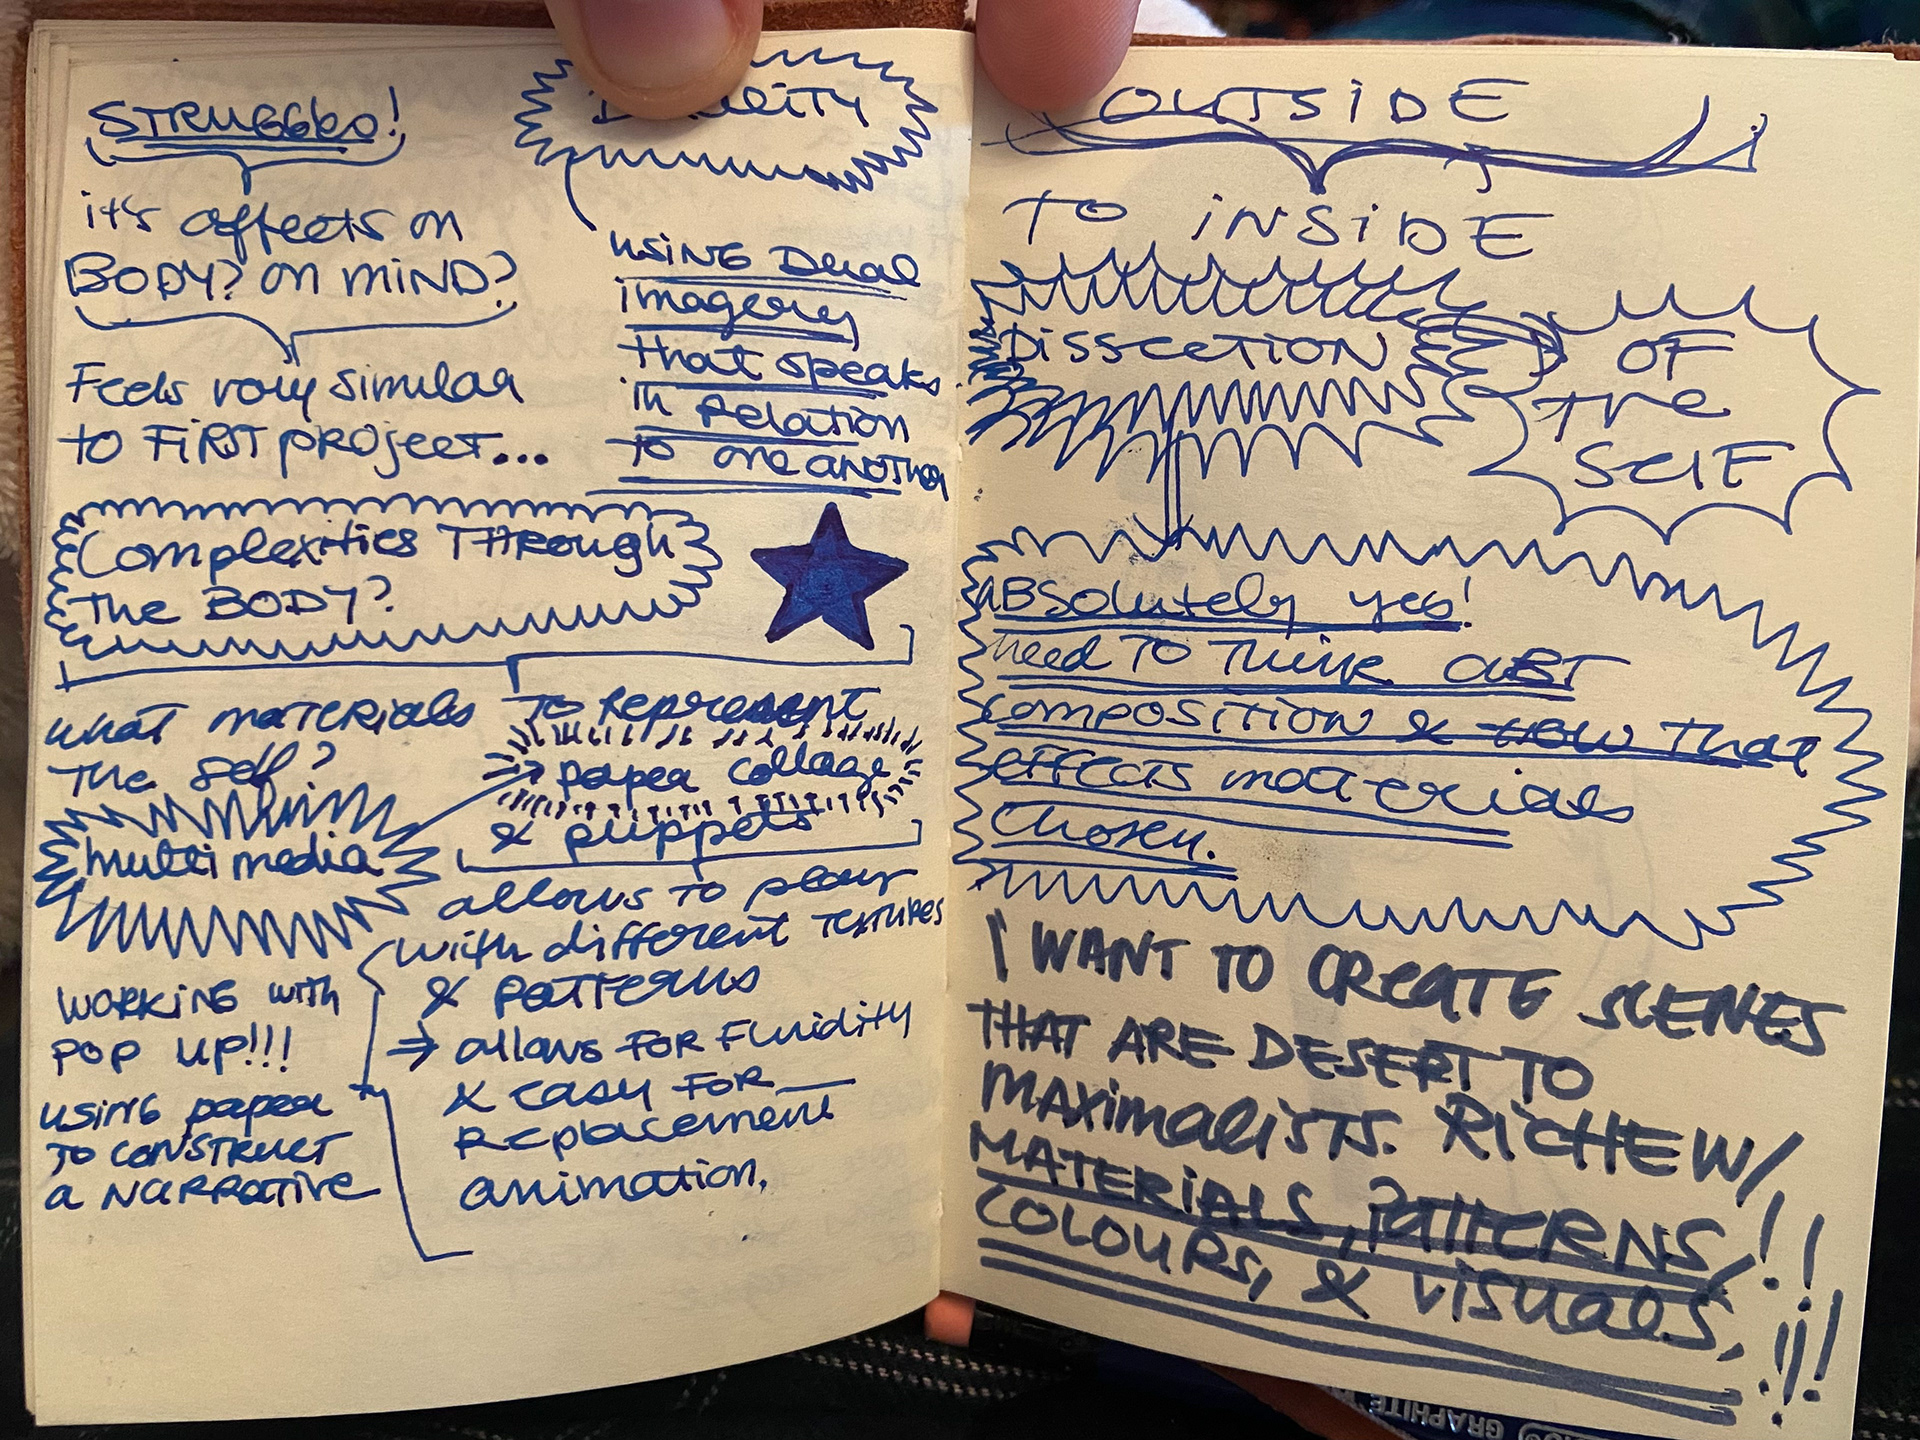 STRUGGLE!
it's affects on
BODY? on MIND?
Feels very similar
to FIRST project...
DUALITY
using Dual
imagery
that speaks
in Relation
to one another
Complexities Through
the BODY?
what materials To Represent
the self?
multi media
paper collage
& puppets
allows to play
with different textures
& patterns
⇒ allows FOR Fluidity
& easy FOR
Replacement
animation.
WORKING with
POP UP!!!
using paper
To construct
a NARRATIVE
OUTSIDE
TO INSIDE
DISSECTION
OF
THE
SELF
ABSolutely yes!
need TO Think ABT
composition & HOW That
effects materials
chosen.
I WANT TO CREATE SCENES
THAT ARE DESERT TO
MAXIMALISTS. RICHE W/
MATERIALS, PATTERNS,
COLOURS, & VISUALS,
!!!!!
GRAPHITE